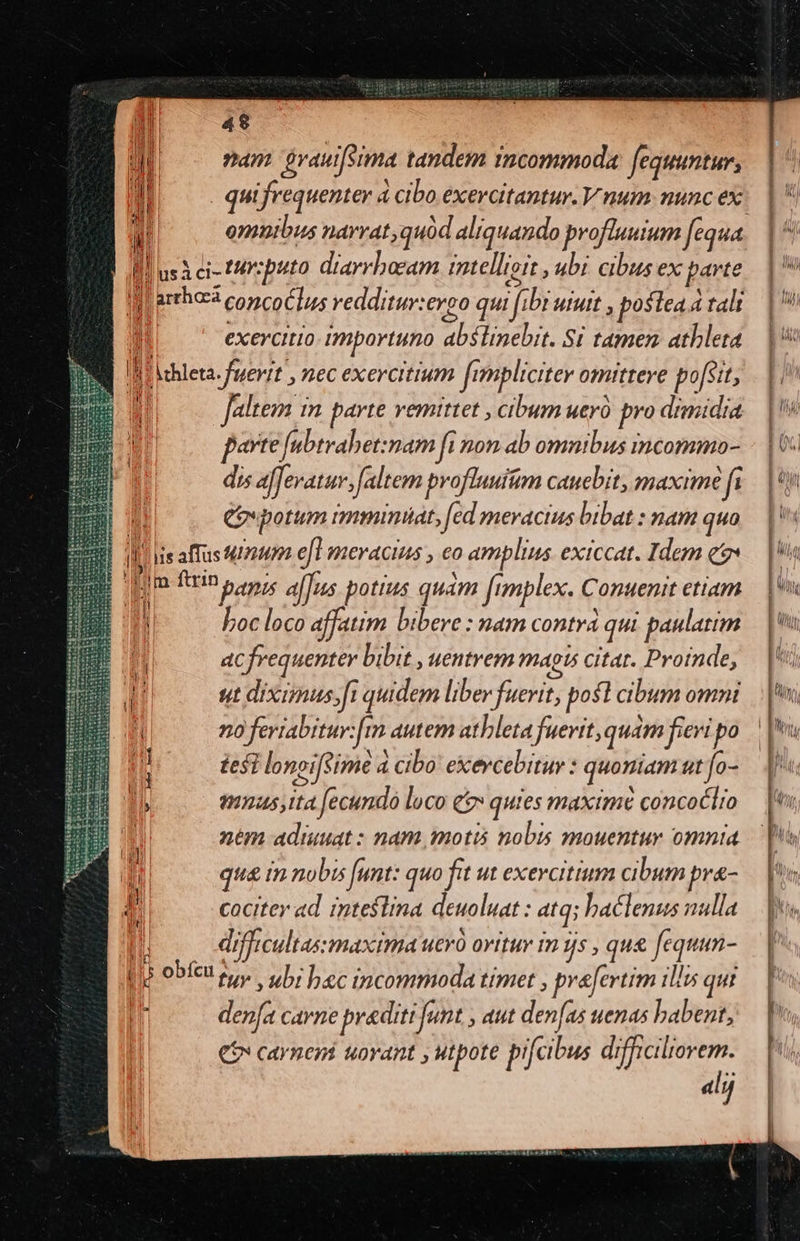 48
nam grauiſsima tandem incommoda ſequuntur,
qui frequenter à cibo exercitantur. Vnum nunc ex
omnibus narrat, quòd aliquando profluuium ſequa
us à ci- tur: puto diarrhœam intelligit, ubi cibus ex parte
arrhœá concoctus redditur: ergo qui ſibi uiuit, postea à tali
exercitio importuno abstinebit. Si tamen athleta
Athleta. fuerit, nec exercitium ſimpliciter omittere poſsit,
ſaltem in parte remittet, cibum uerò pro dimidia
parte ſubtrahet: nam ſi non ab omnibus incommo-
dis aſſeratur, ſaltem profluuiũm cauebit, maximè ſi
& potum imminúat, ſed meracius bibat: nam quo
is aſſus uinum eſt meracius, eo amplius exiccat. Idem &
m ſtrin panis aſſus potius quàm ſimplex. Conuenit etiam
hoc loco affatim bibere: nam contrà qui paulatim
ac frequenter bibit, uentrem magis citat. Proinde,
ut diximus, ſi quidem liber fuerit, post cibum omni
no feriabitur: ſin autem athleta fuerit, quàm fieri po
test longiſsimè à cibo exercebitur: quoniam ut ſo-
mnus, ita ſecundo loco & quies maximè concoctio
nèm adiuuat: nam motis nobis mouentur omnia
quæ in nobis ſunt: quo fit ut exercitium cibum præ-
cociter ad intestina deuoluat: atq; hactenus nulla
difficultas: maxima uerò oritur in ijs, quæ ſequun-
obſcu tur, ubi hæc incommoda timet, præſertim illis qui
denſa carne præditi ſunt, aut denſas uenas habent,
& carnem uorant, utpote piſcibus difficiliorem.
alij